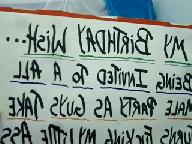 MY BIRTHDAY WISH...
BEING INVITED TO A ALL
MALE PARTY AS GUYS TAKE
TURNS FUCKING MY LITTLE ASS